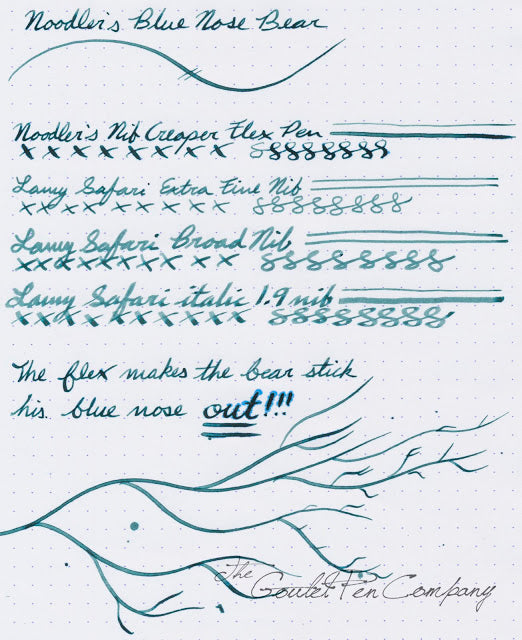 Noodler's Blue Nose Bear
Noodler's Nib Creaper Flex Pen
x x x x x x x x
Lamy Safari Extra Fine Nib
x x x x x x x x x
Lamy Safari Broad Nib
x x x x x x x x x x
Lamy Safari italic 1.9 nib
x x x x x x x x x x
The flex makes the bear stick
his blue nose out!!!
The
Goulet Pen Company